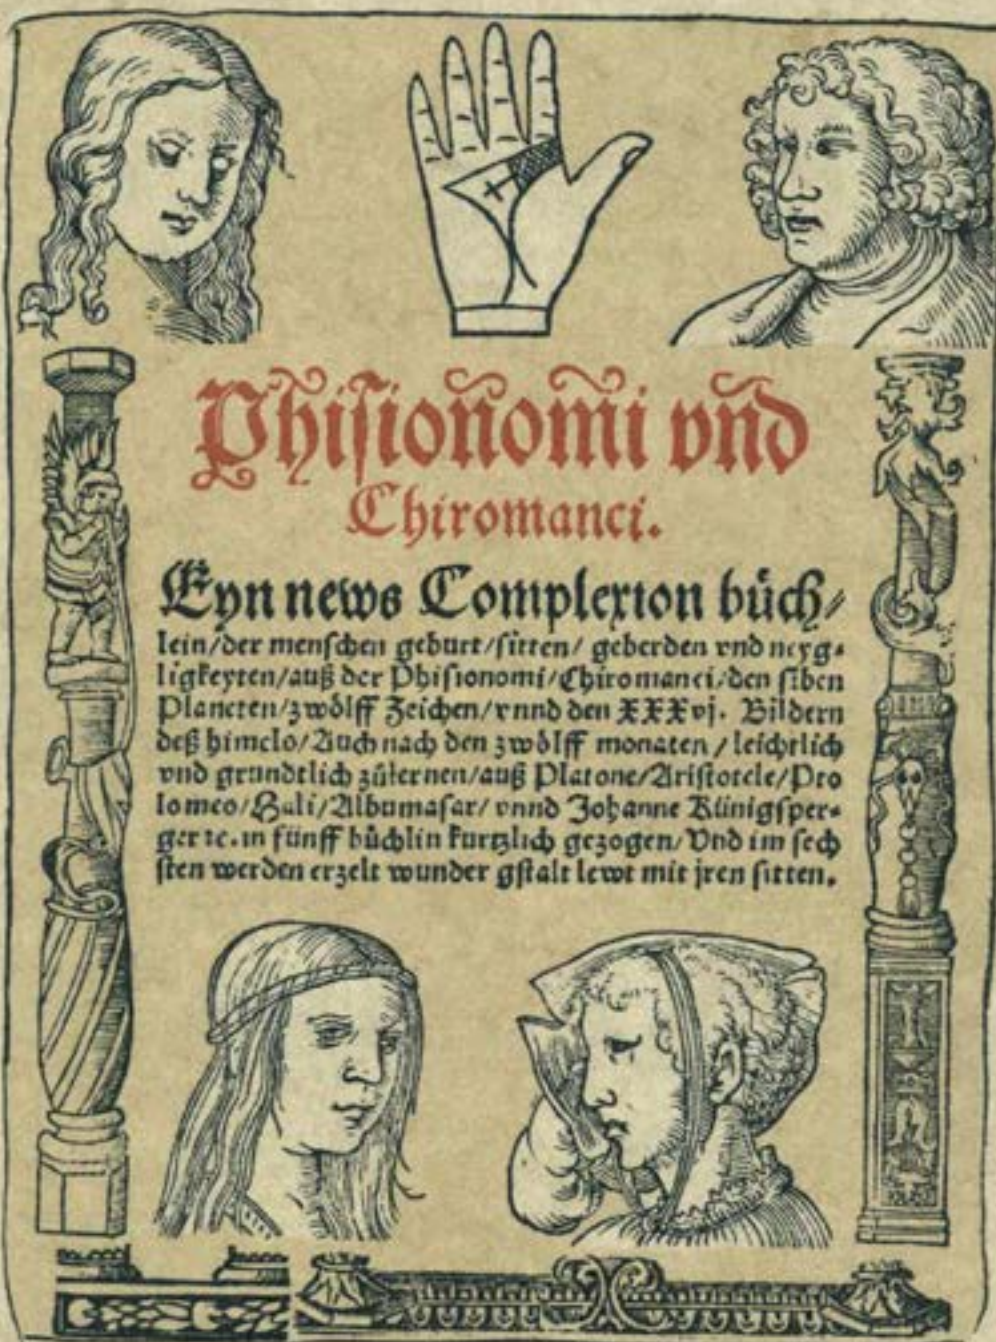 Phisioñomi vñd
Chiromanci.
Eyn news Complexion büch⸗
lein/der menschen geburt/sitten/ geberden vnd neyg⸗
ligkeyten/auß der Phisionomi/Chiromanci/den siben
Planeten/zwölff Zeichen/vnnd den XXXvj. Bildern
deß himels/Auch nach den zwölff monaten/leichtlich
vnd grundtlich zůlernen/auß Platone/Aristotele/Pto
lomeo/Hali/Albumasar/vnnd Johanne Künigsper⸗
ger ꝛc. in fünff büchlin kurtzlich gezogen/Vnd im sech
sten werden erzelt wunder gstalt lewt mit jren sitten.